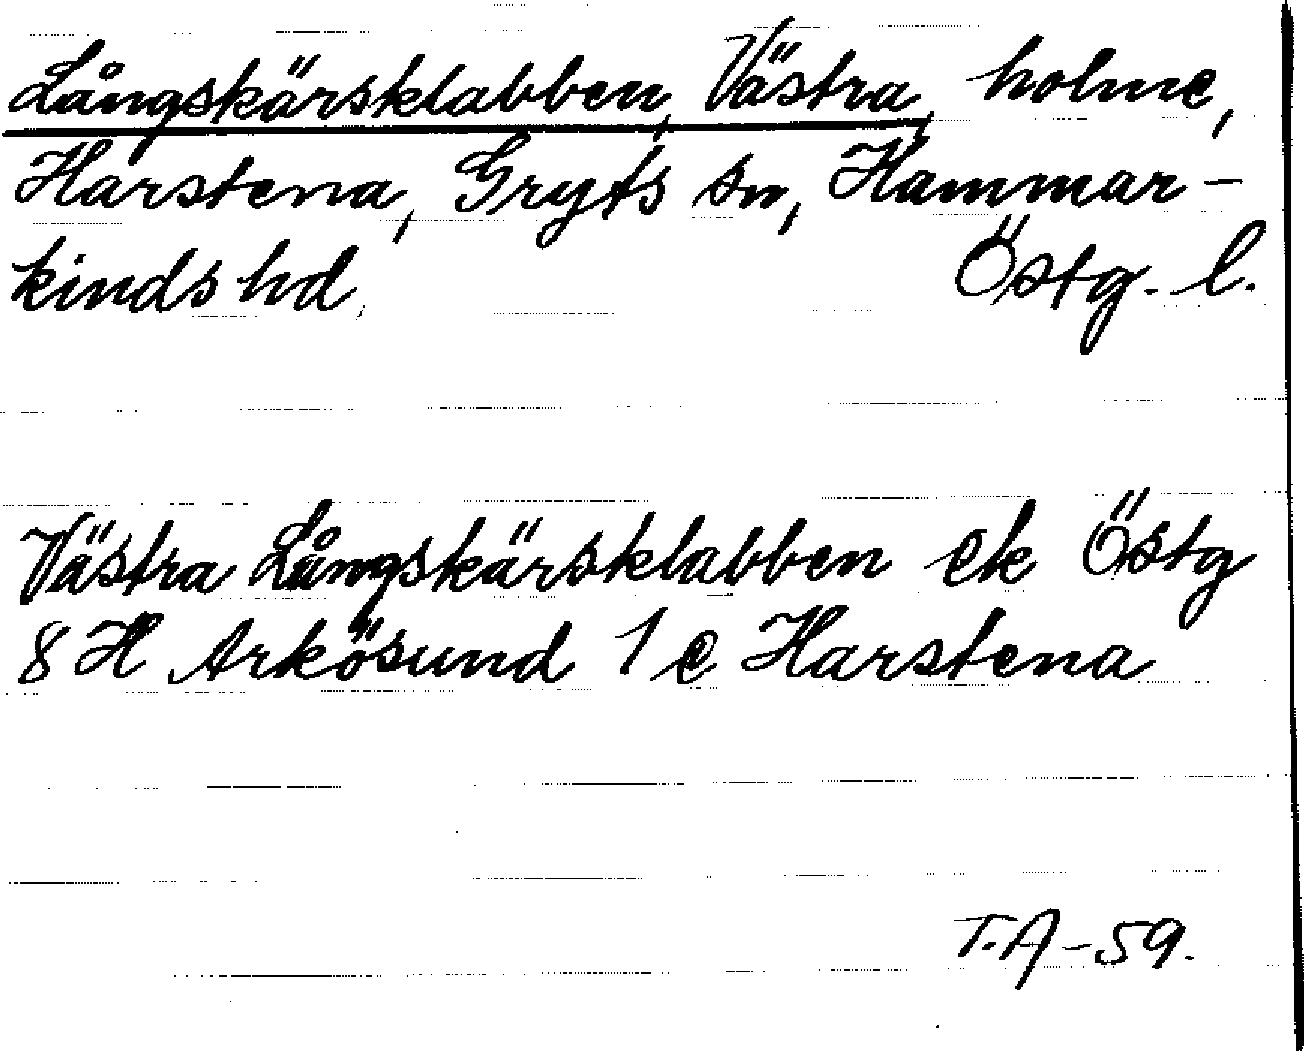 Långskärsklabben, Västra, holme,
Harstena, Gryts sn, Hammar-
kinds hd, Östg. l.
Västra Långskärsklabben ek Östg
8 H Arkösund 1 e Harstena
T.A-59.